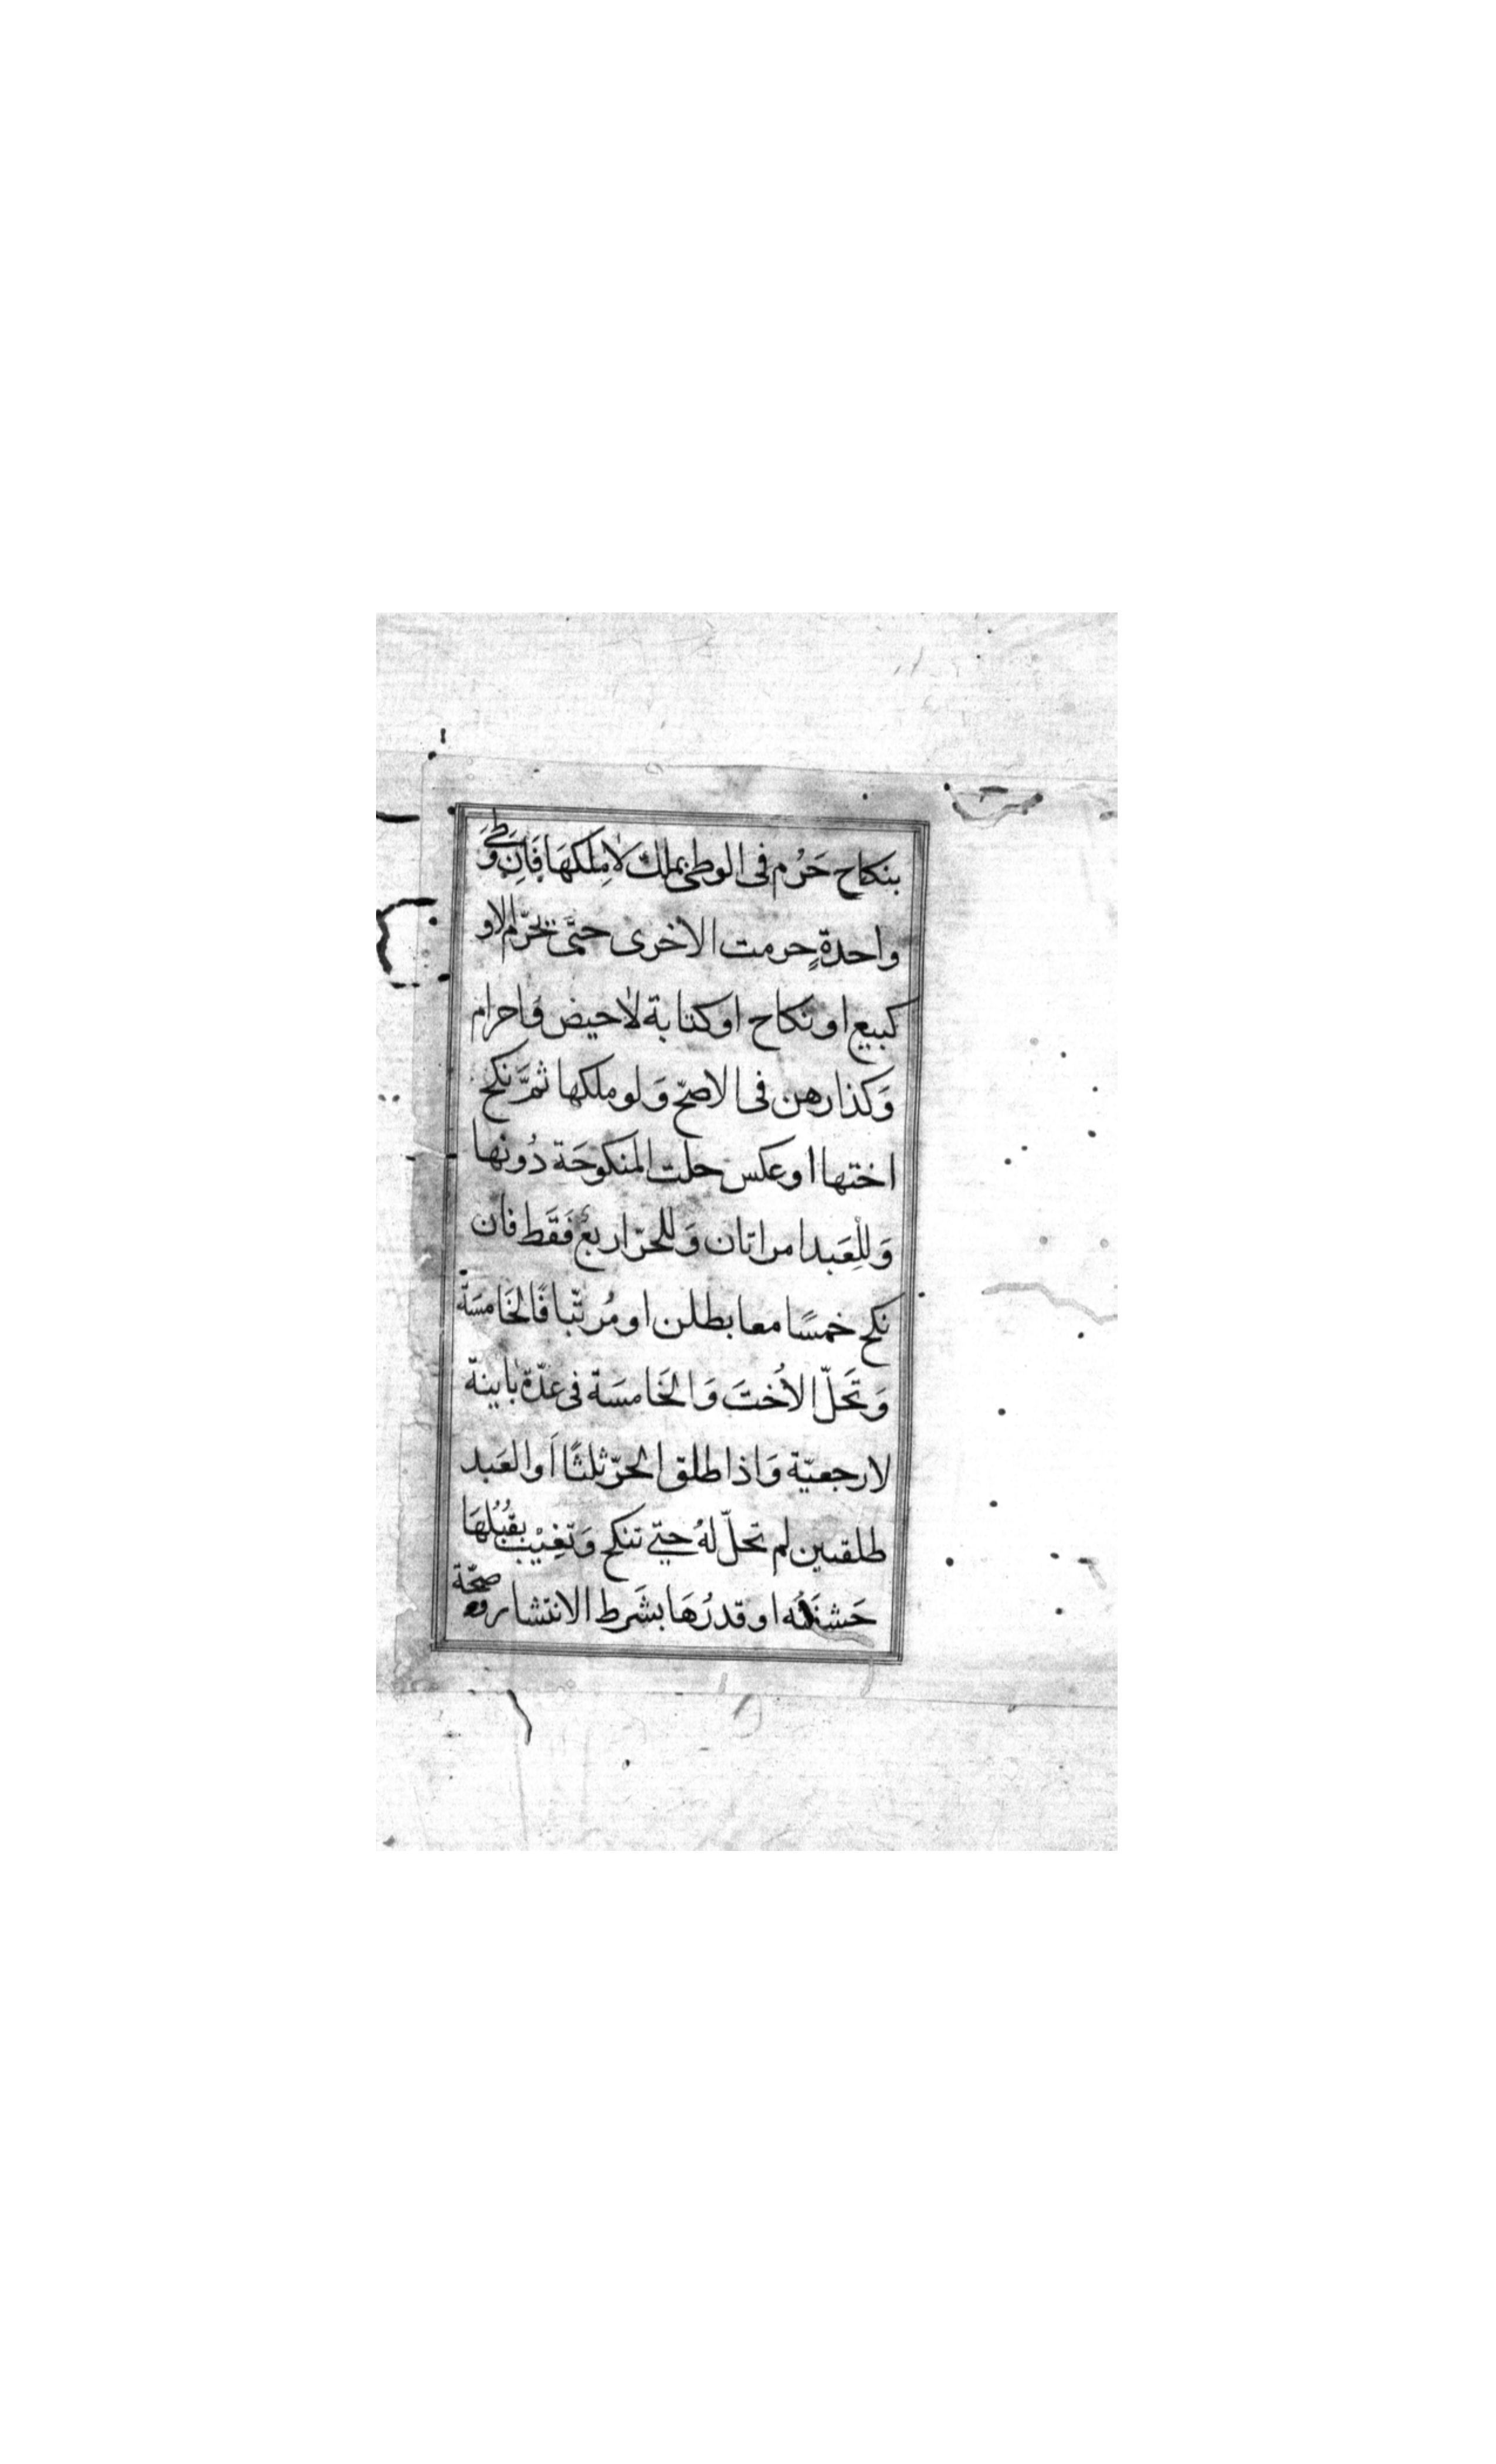 بنكاح حَرُم فى الوطئ بملك لا مِلكهَا فَاِن وَطئ
واحدةٍ حرمت الاخرى حتّى يحرّم الاو
كبيع او نكاح او كتابة لا حيض وَاحرام
وَكذا رهن فى الاصحّ وَلو ملكها ثمَّ نكح
اختها او عكس حلت المنكوحَة دُونها
وَللِعَبد امراتان وَللحرّ اربعُ فَقَط فان
نكح خمسًا معا بطلن او مُرتّبا فَالخَامسَة
وَتَحَلّ الاُختَ وَالخَامسَة فى عدّة باينة
لا رجعيّة وَاذا طلق الحرّ ثلثًا اَو العَبد
طلقتين لم تحلّ لهُ حتّى تنكح وَتغيْب بقُبُلهَا
حَشفَتُه او قدرُهَا بشَرط الانتشار وصحّة